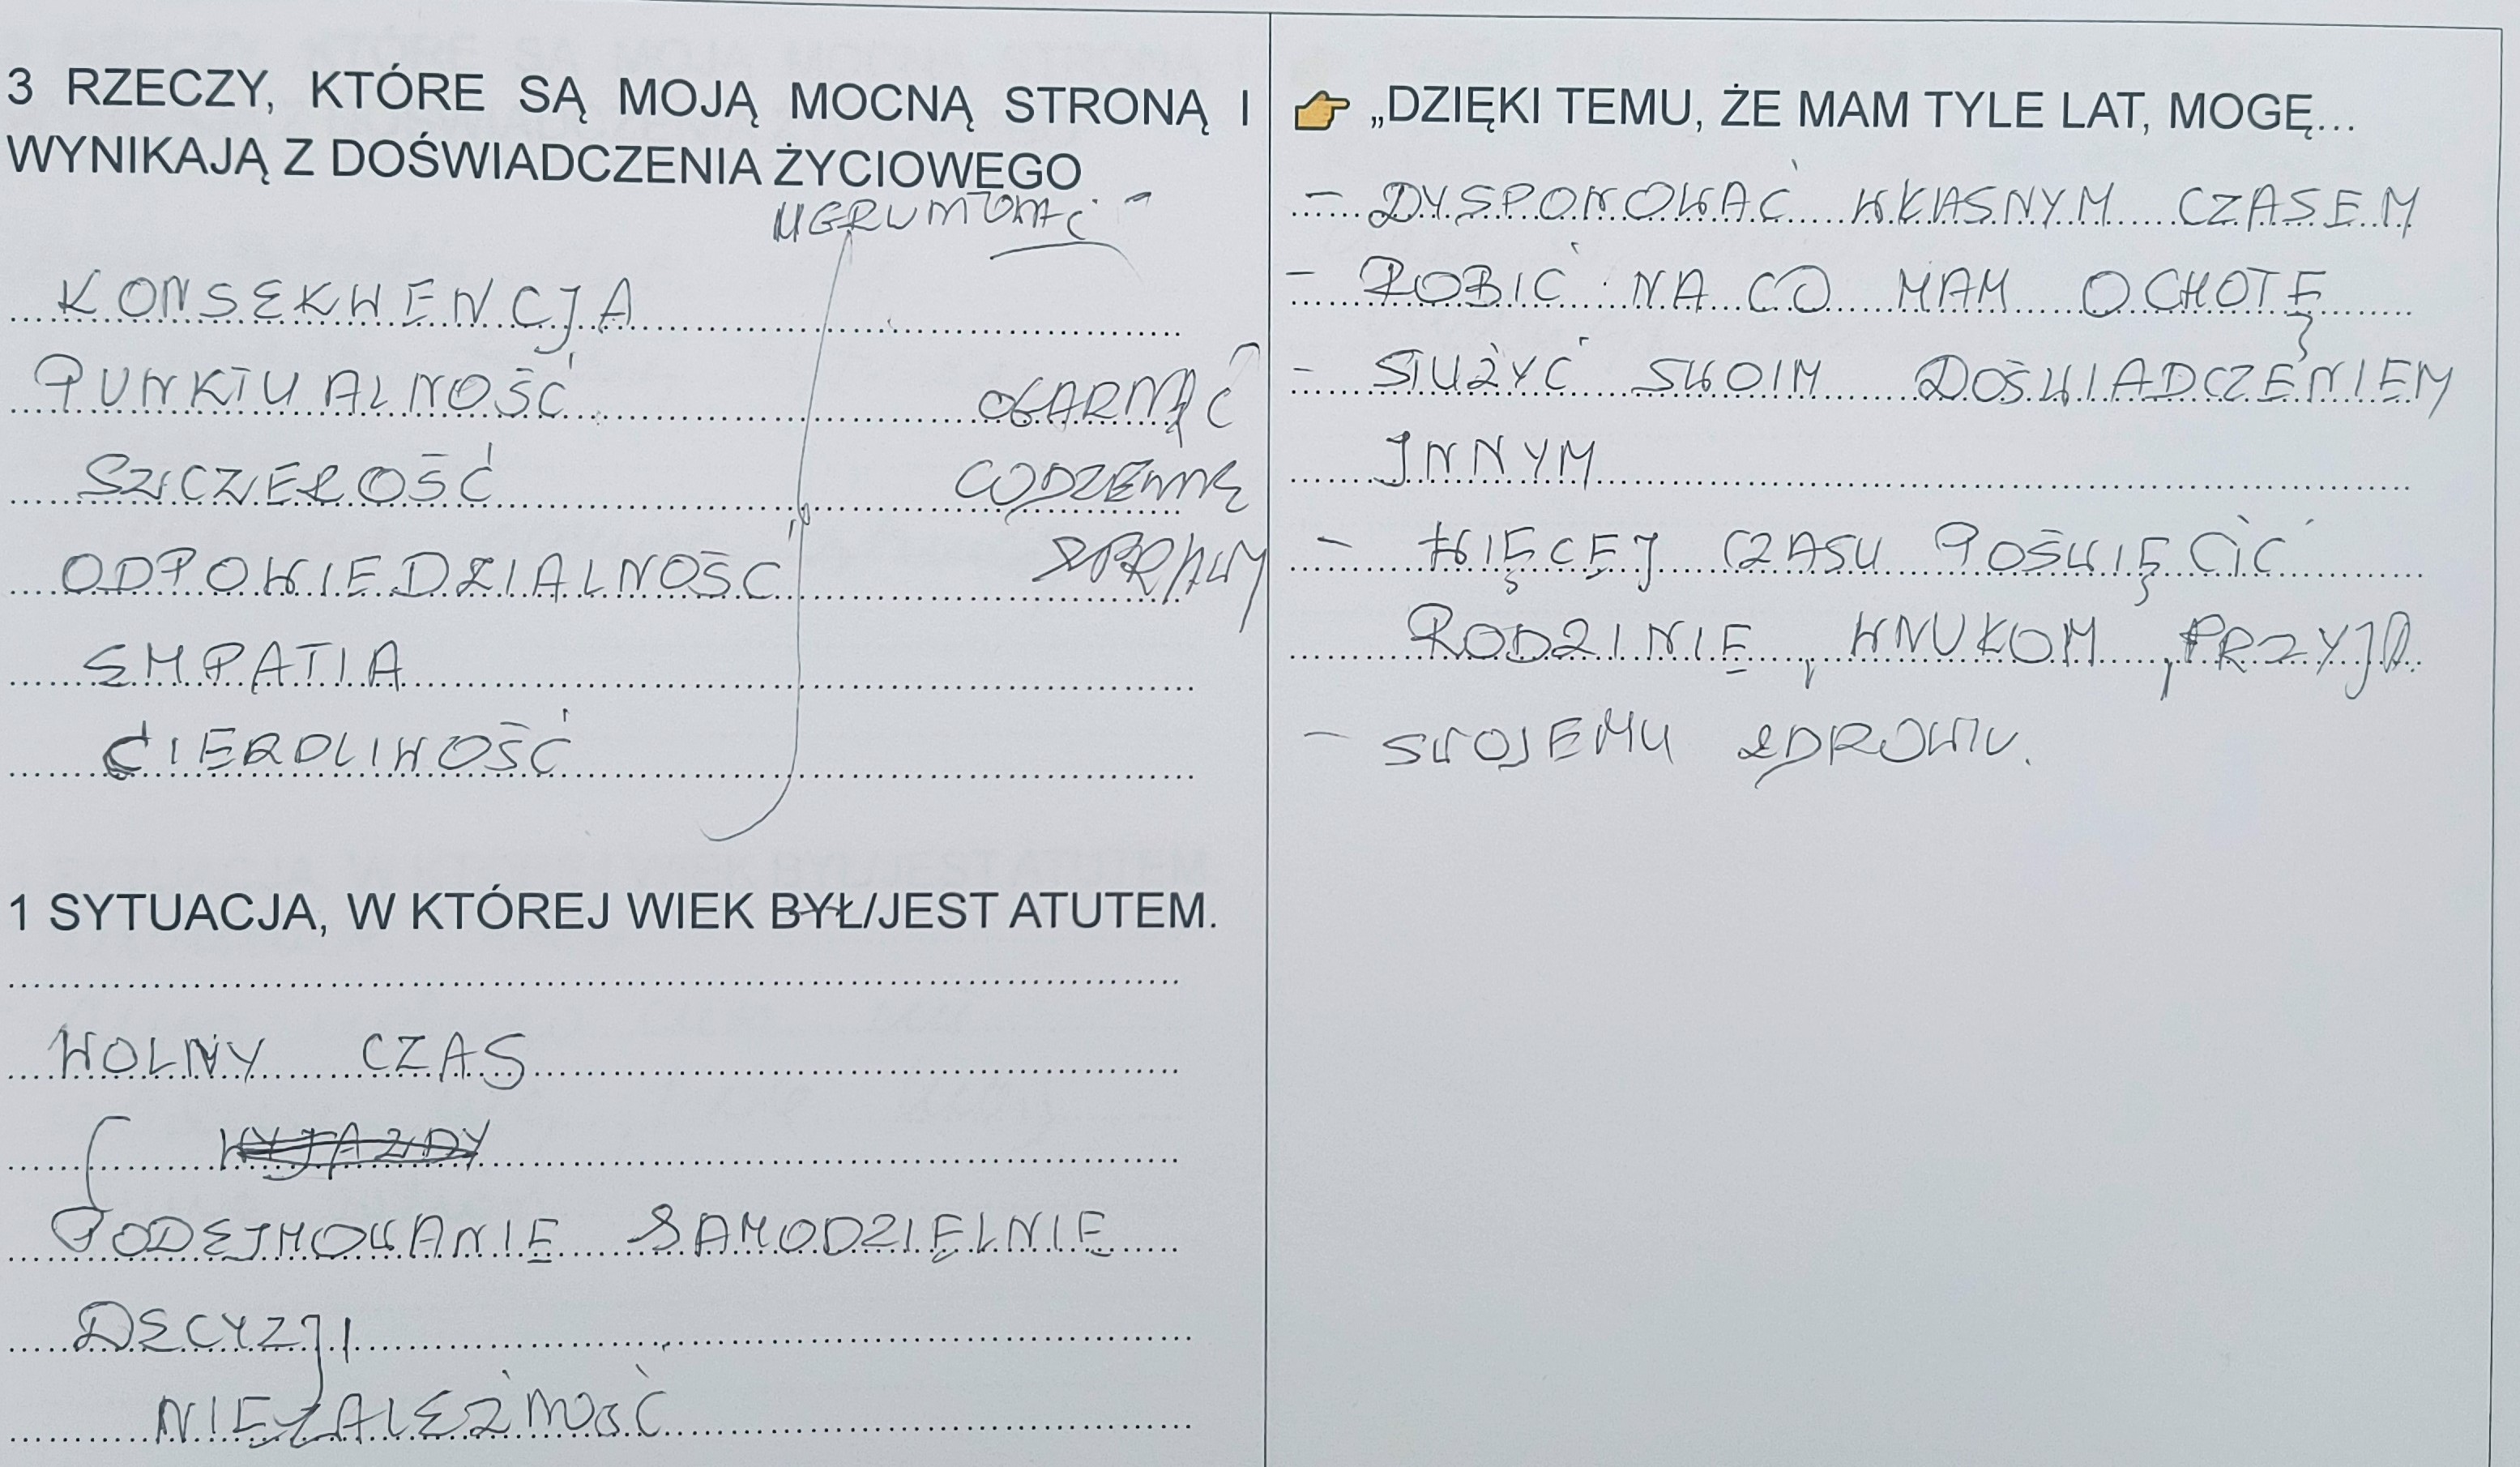 3 RZECZY, KTÓRE SĄ MOJĄ MOCNĄ STRONĄ I
WYNIKAJĄ Z DOŚWIADCZENIA ŻYCIOWEGO
KONSEKWENCJA
PUNKTUALNOŚĆ
SZCZEROŚĆ
ODPOWIEDZIALNOŚĆ
EMPATIA
CIERPLIWOŚĆ
OGARNĄĆ
CODZIENNE
SPRAWY
1 SYTUACJA, W KTÓREJ WIEK BYŁ/JEST ATUTEM.
WOLNY CZAS
WYJAZDY
PODEJMOWANIE SAMODZIELNIE
DECYZJI
NIEZALEŻNOŚĆ
👉 „DZIĘKI TEMU, ŻE MAM TYLE LAT, MOGĘ...
- DYSPONOWAĆ WŁASNYM CZASEM
- ROBIĆ NA CO MAM OCHOTĘ
- SŁUŻYĆ SWOIM DOŚWIADCZENIEM
INNYM
- WIĘCEJ CZASU POŚWIĘCIĆ
RODZINIE, WNUKOM, PRZYJA.
- SWOJEMU ZDROWIU.